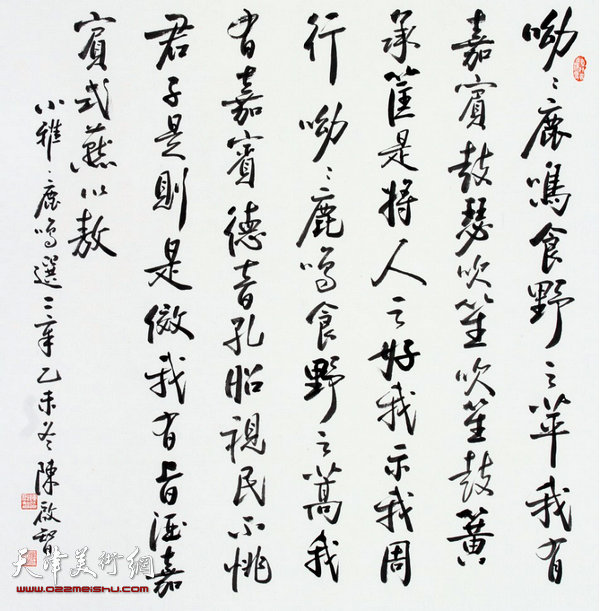 呦〻鹿鳴食野之苹我有
嘉賓鼓瑟吹笙吹笙鼓簧
承筐是將人之好我示我周
行呦〻鹿鳴食野之蒿我
有嘉賓德音孔昭視民不恌
君子是則是傚我有旨酒嘉
賓式燕以敖
小雅、鹿鳴選二章乙未冬陳啟智
天津美術網
www.022meishu.com